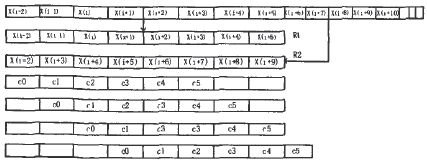 X(i-2) X(i-1) X(i) X(i+1) X(i+2) X(i+3) X(i+4) X(i+5) X(i+6) X(i+7) X(i+8) X(i+9) X(i+10)
X(i-2) X(i-1) X(i) X(i+1) X(i+2) X(i+3) X(i+4) X(i+5) R1
R2
X(i-2) X(i+3) X(i+4) X(i+5) X(i+6) X(i+7) X(i+8) X(i+9)
c0 c1 c2 c3 c4 c5
c0 c1 c2 c3 c4 c5
c0 c1 c3 c3 c4 c5
c0 c1 c2 c3 c4 c5